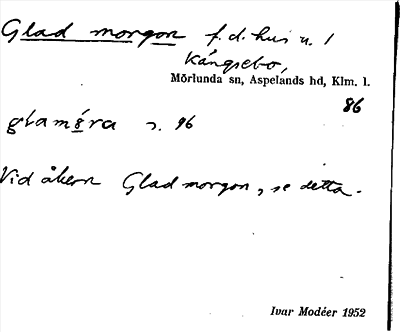 Glad morgon f. d. hus u. 1
Kångsebo,
Mörlunda sn, Aspelands hd, Klm. l.
86
s. 96
Vid åkern Glad morgon, se detta.
Ivar Modéer 1952